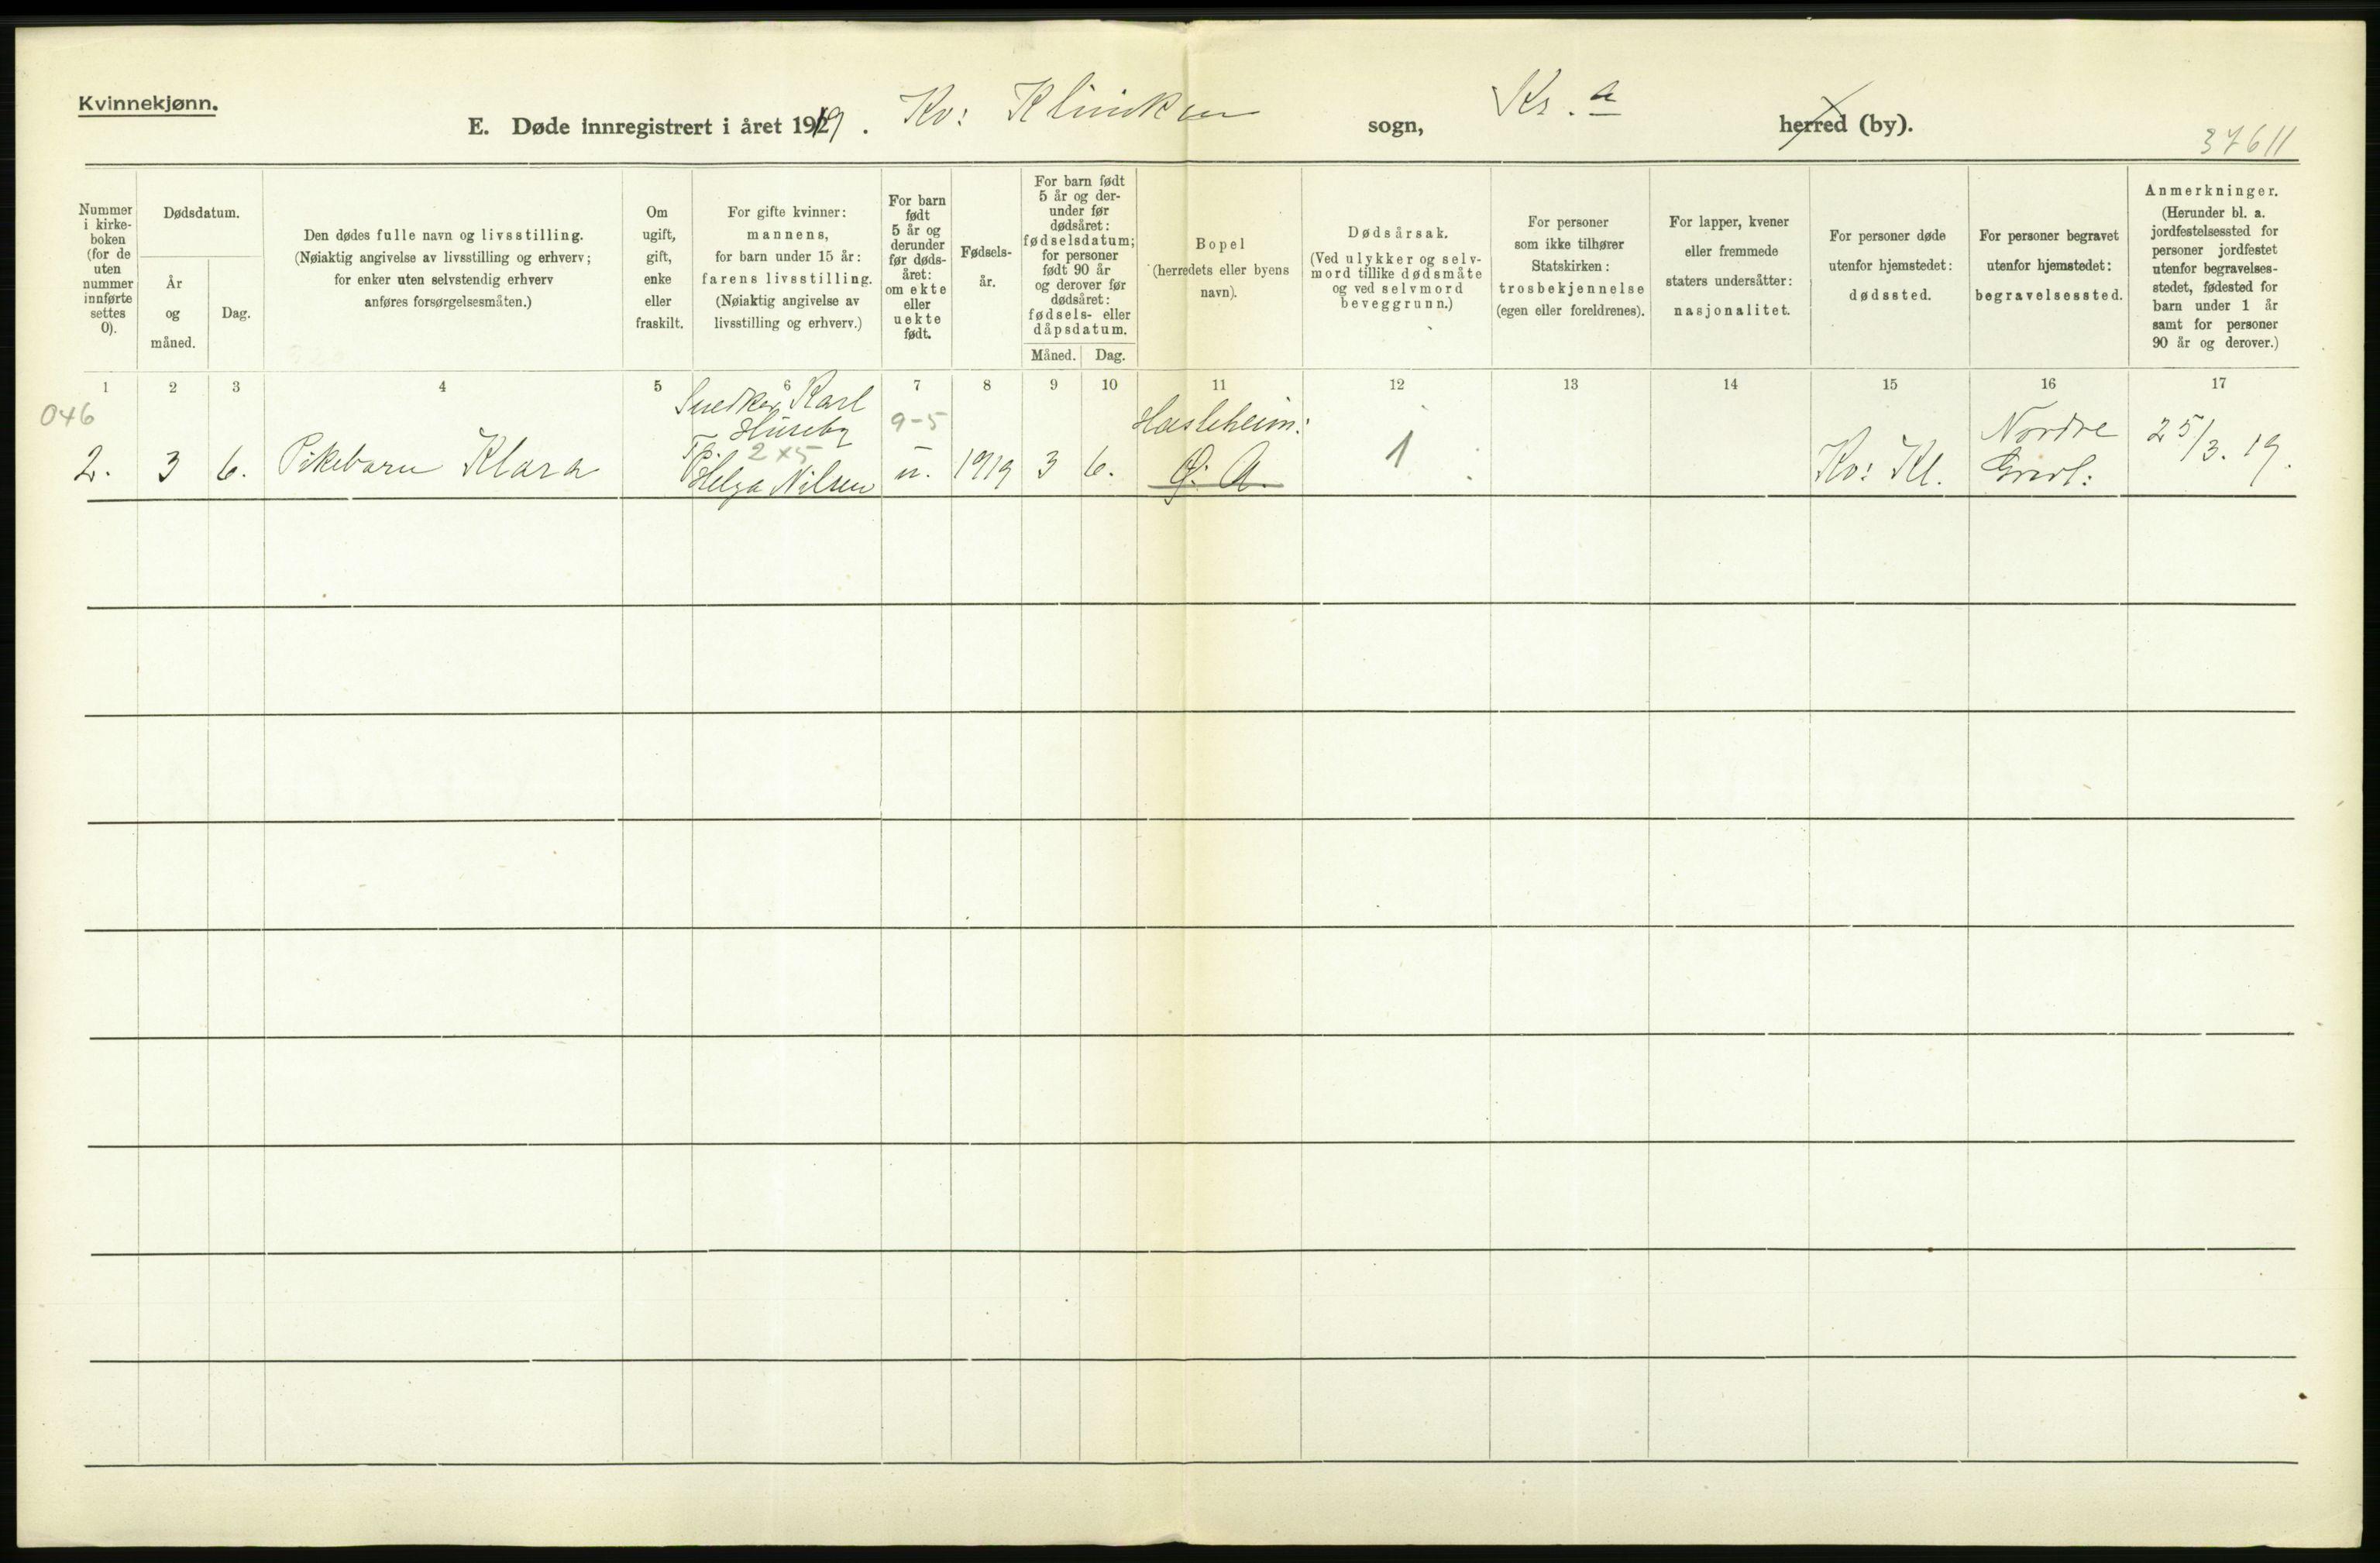 Kvinnekjønn.
E. Døde innregistrert i året 1919. Kv: Kliniken sogn, Kr.a herred (by).
37611
Nummer i kirke-boken (for de uten nummer innførte settes 0).
Dødsdatum.
År og måned.
Dag.
Den dødes fulle navn og livsstilling.
(Nøiaktig angivelse av livsstilling og erhverv;
for enker uten selvstendig erhverv
anføres forsørgelsesmåten.)
Om
ugift,
gift,
enke
eller
fraskilt.
For gifte kvinner:
mannens,
for barn under 15 år:
farens livsstilling.
(Nøiaktig angivelse av
livsstilling og erhverv.)
For barn
født
5 år og
derunder
før døds-
året:
om ekte
eller
uekte
født.
Fødsels-
år.
For barn født
5 år og der-
under før
dødsåret:
fødselsdatum;
for personer
født 90 år
og derover før
dødsåret:
fødsels- eller
dåpsdatum.
Måned. Dag.
Bopel
(herredets eller byens
navn).
Dødsårsak.
(Ved ulykker og selv-
mord tillike dødsmåte
og ved selvmord
beveggrunn.)
For personer
som ikke tilhører
Statskirken:
trosbekjennelse
(egen eller foreldrenes).
For lapper, kvener
eller fremmede
staters undersåtter:
nasjonalitet.
For personer døde
utenfor hjemstedet:
dødssted.
For personer begravet
utenfor hjemstedet:
begravelsessted.
Anmerkninger.
(Herunder bl. a.
jordfestelsessted for
personer jordfestet
utenfor begravelses-
stedet, fødested for
barn under 1 år
samt for personer
90 år og derover.)
1 2 3 4 5 6 7 8 9 10 11 12 13 14 15 16 17
046
2. 3 6. Pikebarn Klara
Snedker Karl
Huseby
2x5
Helga Nilsen
9-5
u. 1919 3 6.
Hasleheim:
Ø. A.
1
Kv: Kl.
Nordre
Gravl:
25/3. 19.